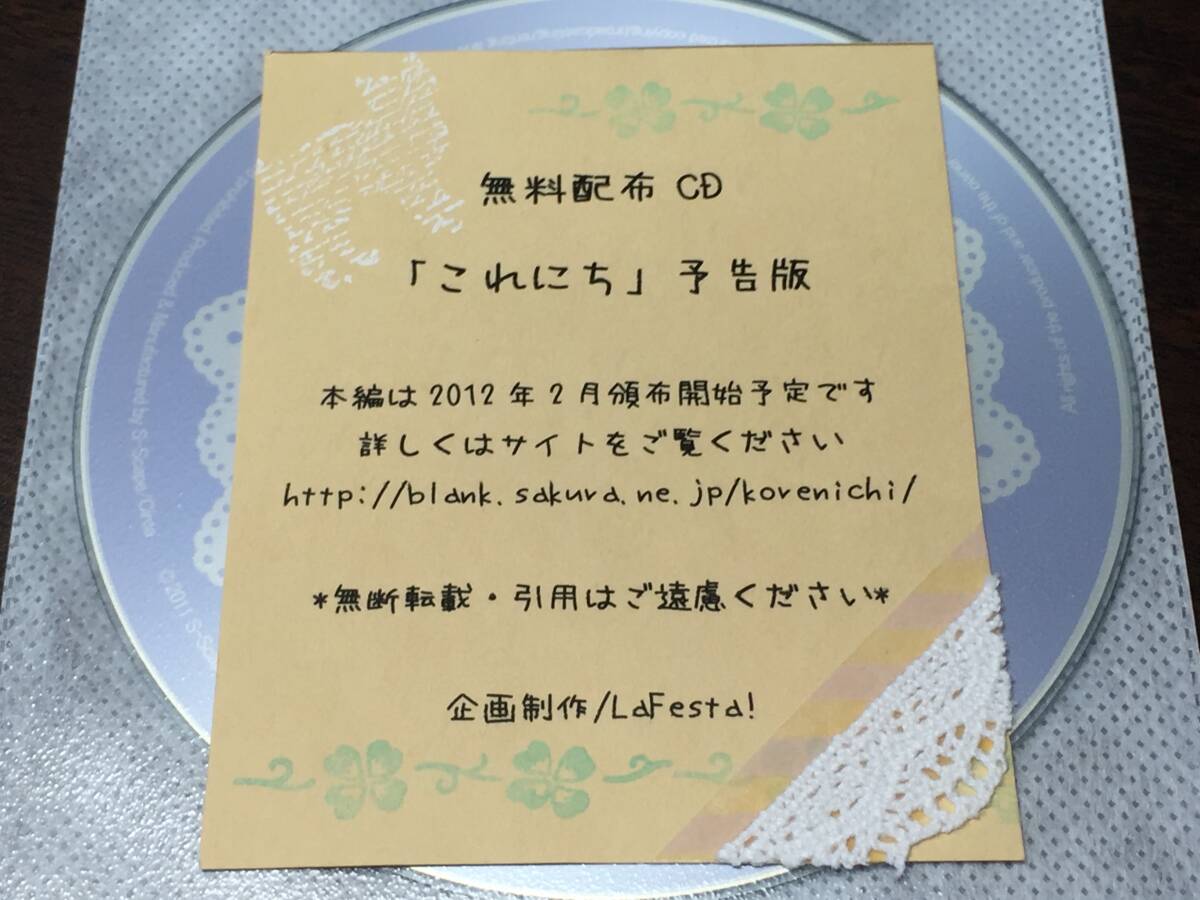 無料配布 CD
「これにち」予告版
本編は2012年2月頒布開始予定です
詳しくはサイトをご覧ください
http://blank.sakura.ne.jp/korenichi/
*無断転載・引用はご遠慮ください*
企画制作/LaFesta!
All rights of the producer and of the owner
prohibited Produced & Manufactured by S-Scape/Crea
©2011 S-Sca